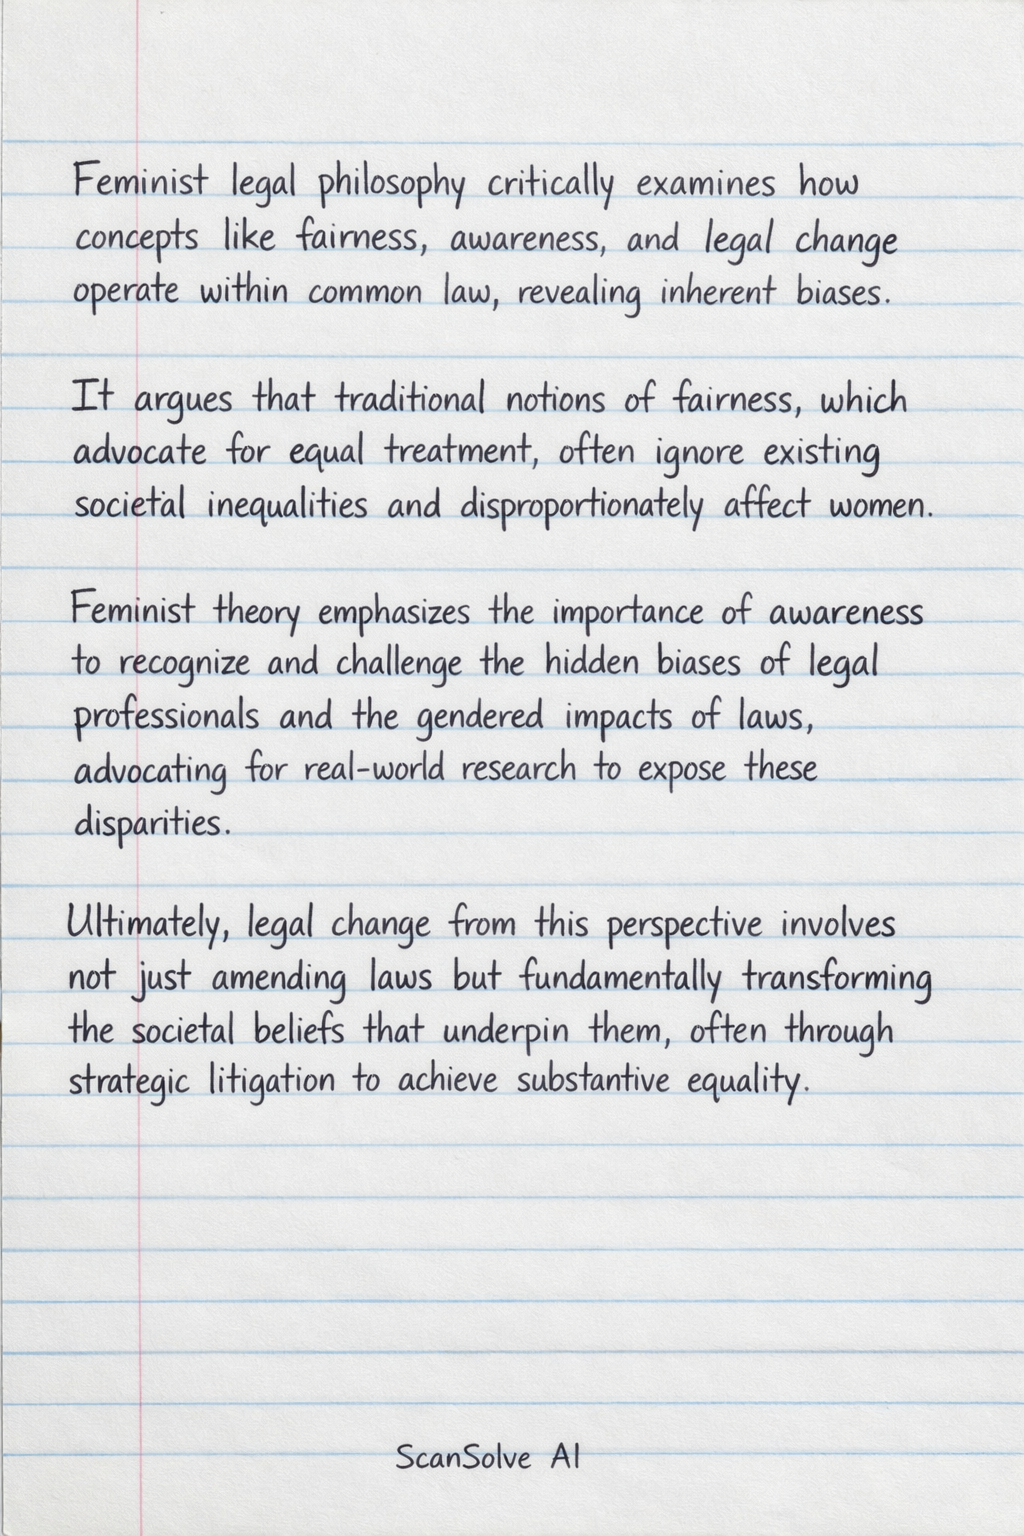 Feminist legal philosophy critically examines how
concepts like fairness, awareness, and legal change
operate within common law, revealing inherent biases.
It argues that traditional notions of fairness, which
advocate for equal treatment, often ignore existing
societal inequalities and disproportionately affect women.
Feminist theory emphasizes the importance of awareness
to recognize and challenge the hidden biases of legal
professionals and the gendered impacts of laws,
advocating for real-world research to expose these
disparities.
Ultimately, legal change from this perspective involves
not just amending laws but fundamentally transforming
the societal beliefs that underpin them, often through
strategic litigation to achieve substantive equality.
ScanSolve AI